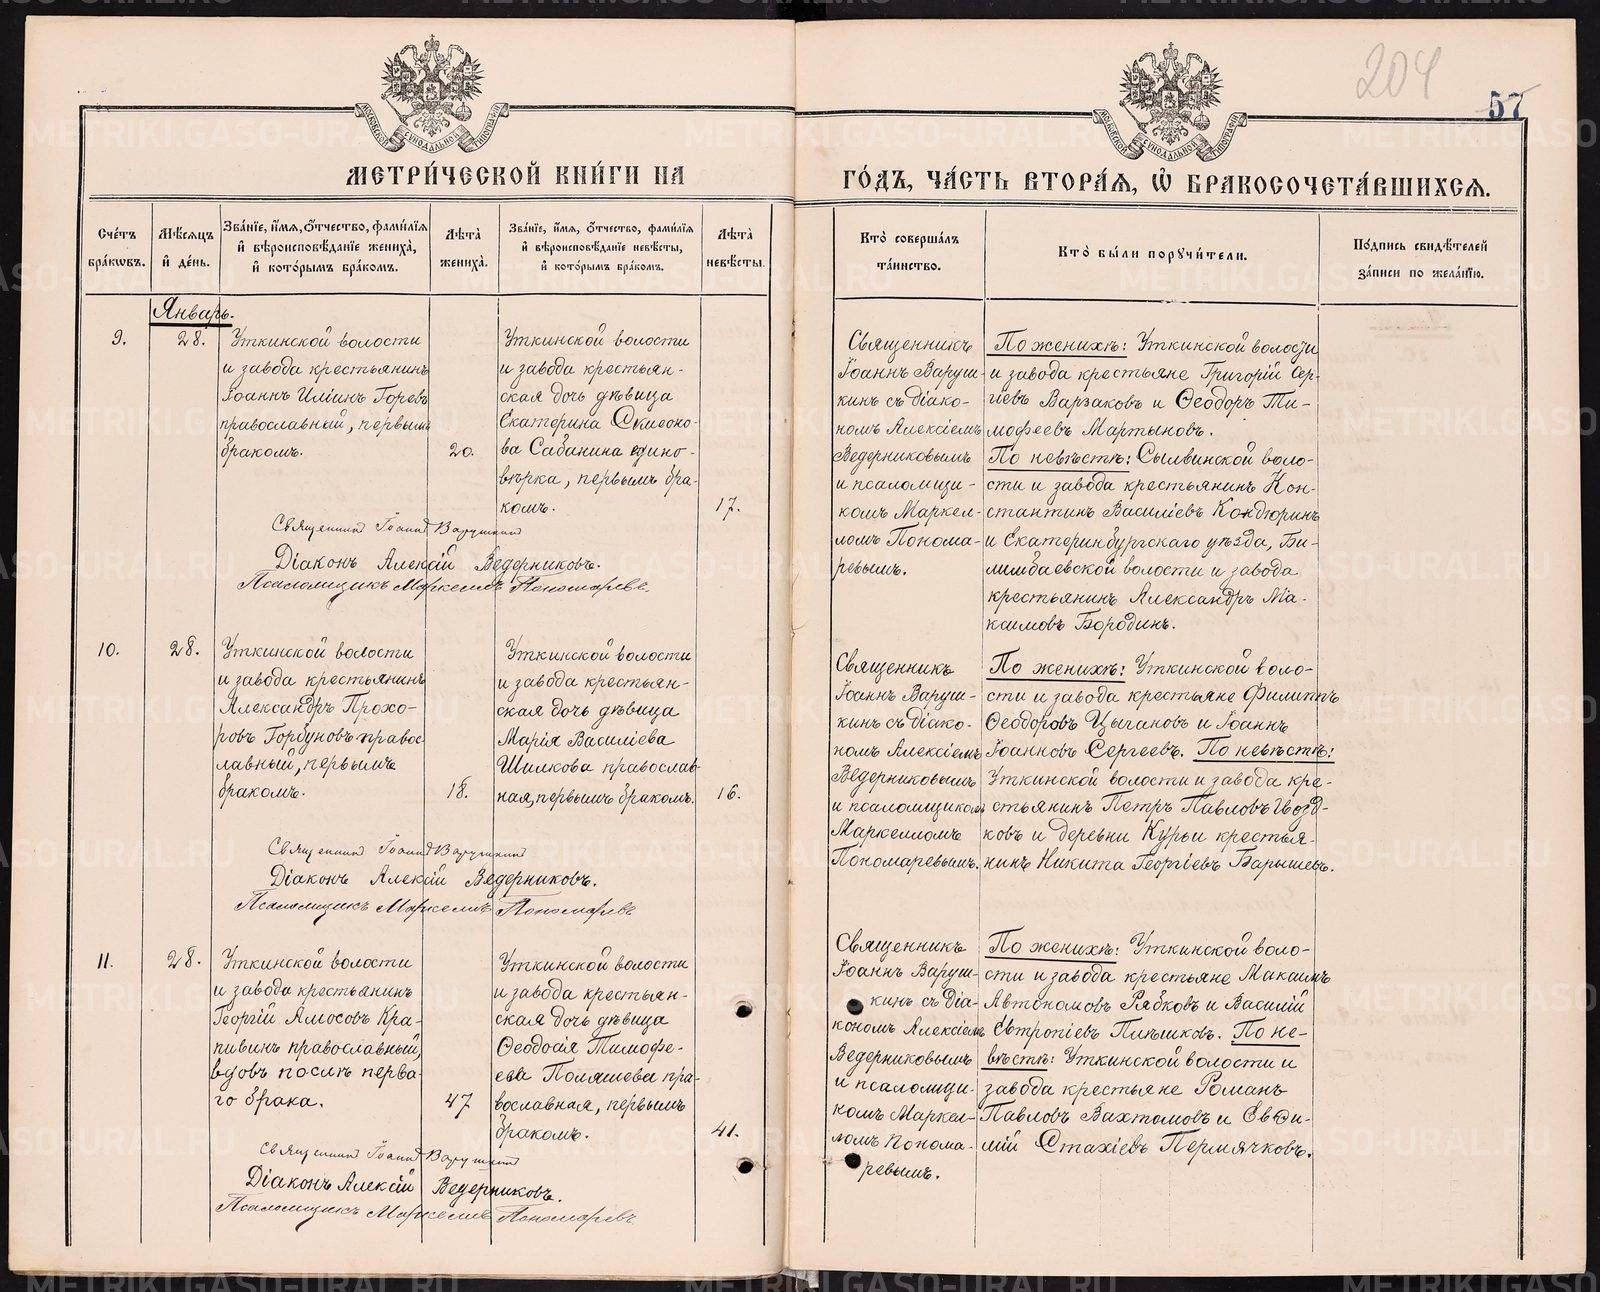 204
57
МОСКОВСКОЙ СѴНОДАЛЬНОЙ ТИПОГРАФІИ
МОСКОВСКОЙ СѴНОДАЛЬНОЙ ТИПОГРАФІИ
МЕТРИ́ЧЕСКОЙ КНИ́ГИ НА
ГО́ДЪ, ЧА́СТЬ ВТОРА́Я, Ѽ БРАКОСОЧЕТА́ВШИХСЯ.
Сче́тъ бра́кѡвъ.
Мѣ́сяцъ и҆ де́нь.
Зва́нїе, и҆́мя, ѻ҆́тчество, фами́лїя
и҆ вѣроисповѣ́данїе жениха̀,
и҆ кото́рымъ бра́комъ.
Лѣта̀ жениха̀.
Зва́нїе, и҆́мя, ѻ҆́тчество, фами́лїя
и҆ вѣроисповѣ́данїе невѣ́сты,
и҆ кото́рымъ бра́комъ.
Лѣта̀ невѣ́сты.
Кто̀ соверша́лъ
та́инство.
Кто̀ бы́ли поручи́тели.
По́дпись свидѣ́телей
за́писи по жела́нїю.
Январь.
9.
28.
Уткинской волости
и завода крестьянинъ
Іоаннъ Иліинъ Горевъ
православный, первымъ
бракомъ.
20.
Уткинской волости
и завода крестьян-
ская дочь дѣвица
Екатерина Симеоно-
ва Сабанина едино-
вѣрка, первымъ бра-
комъ.
17.
Священникъ
Іоаннъ Варуш-
кинъ съ діако-
номъ Алексіемъ
Ведерниковымъ
и псаломщи-
комъ Маркел-
ломъ Понома-
ревымъ.
По женихѣ: Уткинской волости
и завода крестьяне Григорій Сер-
гіевъ Варзаковъ и Ѳеодоръ Ти-
мофеевъ Мартыновъ.
По невѣстѣ: Сылвинской воло-
сти и завода крестьянинъ Кон-
стантинъ Василіевъ Кондюринъ
и Екатеринбургскаго уѣзда, Би-
лимбаевской волости и завода
крестьянинъ Александръ Ма-
ксимовъ Бородинъ.
Священникъ Іоаннъ Варушкинъ
Діаконъ Алексій Ведерниковъ.
Псаломщикъ Маркеллъ Пономаревъ.
10.
28.
Уткинской волости
и завода крестьянинъ
Александръ Прохо-
ровъ Горбуновъ правос-
лавный, первымъ
бракомъ.
18.
Уткинской волости
и завода крестьян-
ская дочь дѣвица
Марія Василіева
Шилкова православ-
ная, первымъ бракомъ.
16.
Священникъ
Іоаннъ Варуш-
кинъ съ діако-
номъ Алексіемъ
Ведерниковымъ
и псаломщикомъ
Маркелломъ
Пономаревымъ.
По женихѣ: Уткинской воло-
сти и завода крестьяне Филиппъ
Ѳеодоровъ Цыгановъ и Іоаннъ
Іоанновъ Сергеевъ. По невѣстѣ:
Уткинской волости и завода кре-
стьянинъ Петръ Павловъ Гвозд-
ковъ и деревни Курьи крестья-
нинъ Никита Георгіевъ Барышевъ.
Священникъ Іоаннъ Варушкинъ
Діаконъ Алексій Ведерниковъ.
Псаломщикъ Маркеллъ Пономаревъ
11.
28.
Уткинской волости
и завода крестьянинъ
Георгій Амосовъ Кра-
пивинъ православный,
вдовъ послѣ перва-
го брака.
47
Уткинской волости
и завода крестьян-
ская дочь дѣвица
Ѳеодосія Тимофе-
ева Поляшева пра-
вославная, первымъ
бракомъ.
41.
Священникъ
Іоаннъ Варуш-
кинъ съ діа-
кономъ Алексіемъ
Ведерниковымъ
и псаломщи-
комъ Маркел-
ломъ Понома-
ревымъ.
По женихѣ: Уткинской воло-
сти и завода крестьяне Максимъ
Автономовъ Рябковъ и Василій
Евтропіевъ Плѣшковъ. По не-
вѣстѣ: Уткинской волости и
завода крестьяне Романъ
Павловъ Вахтомовъ и Евфи-
мій Стахіевъ Пермячковъ.
Священникъ Іоаннъ Варушкинъ
Діаконъ Алексій Ведерниковъ.
Псаломщикъ Маркеллъ Пономаревъ
METRIKI.GASO-URAL.RU